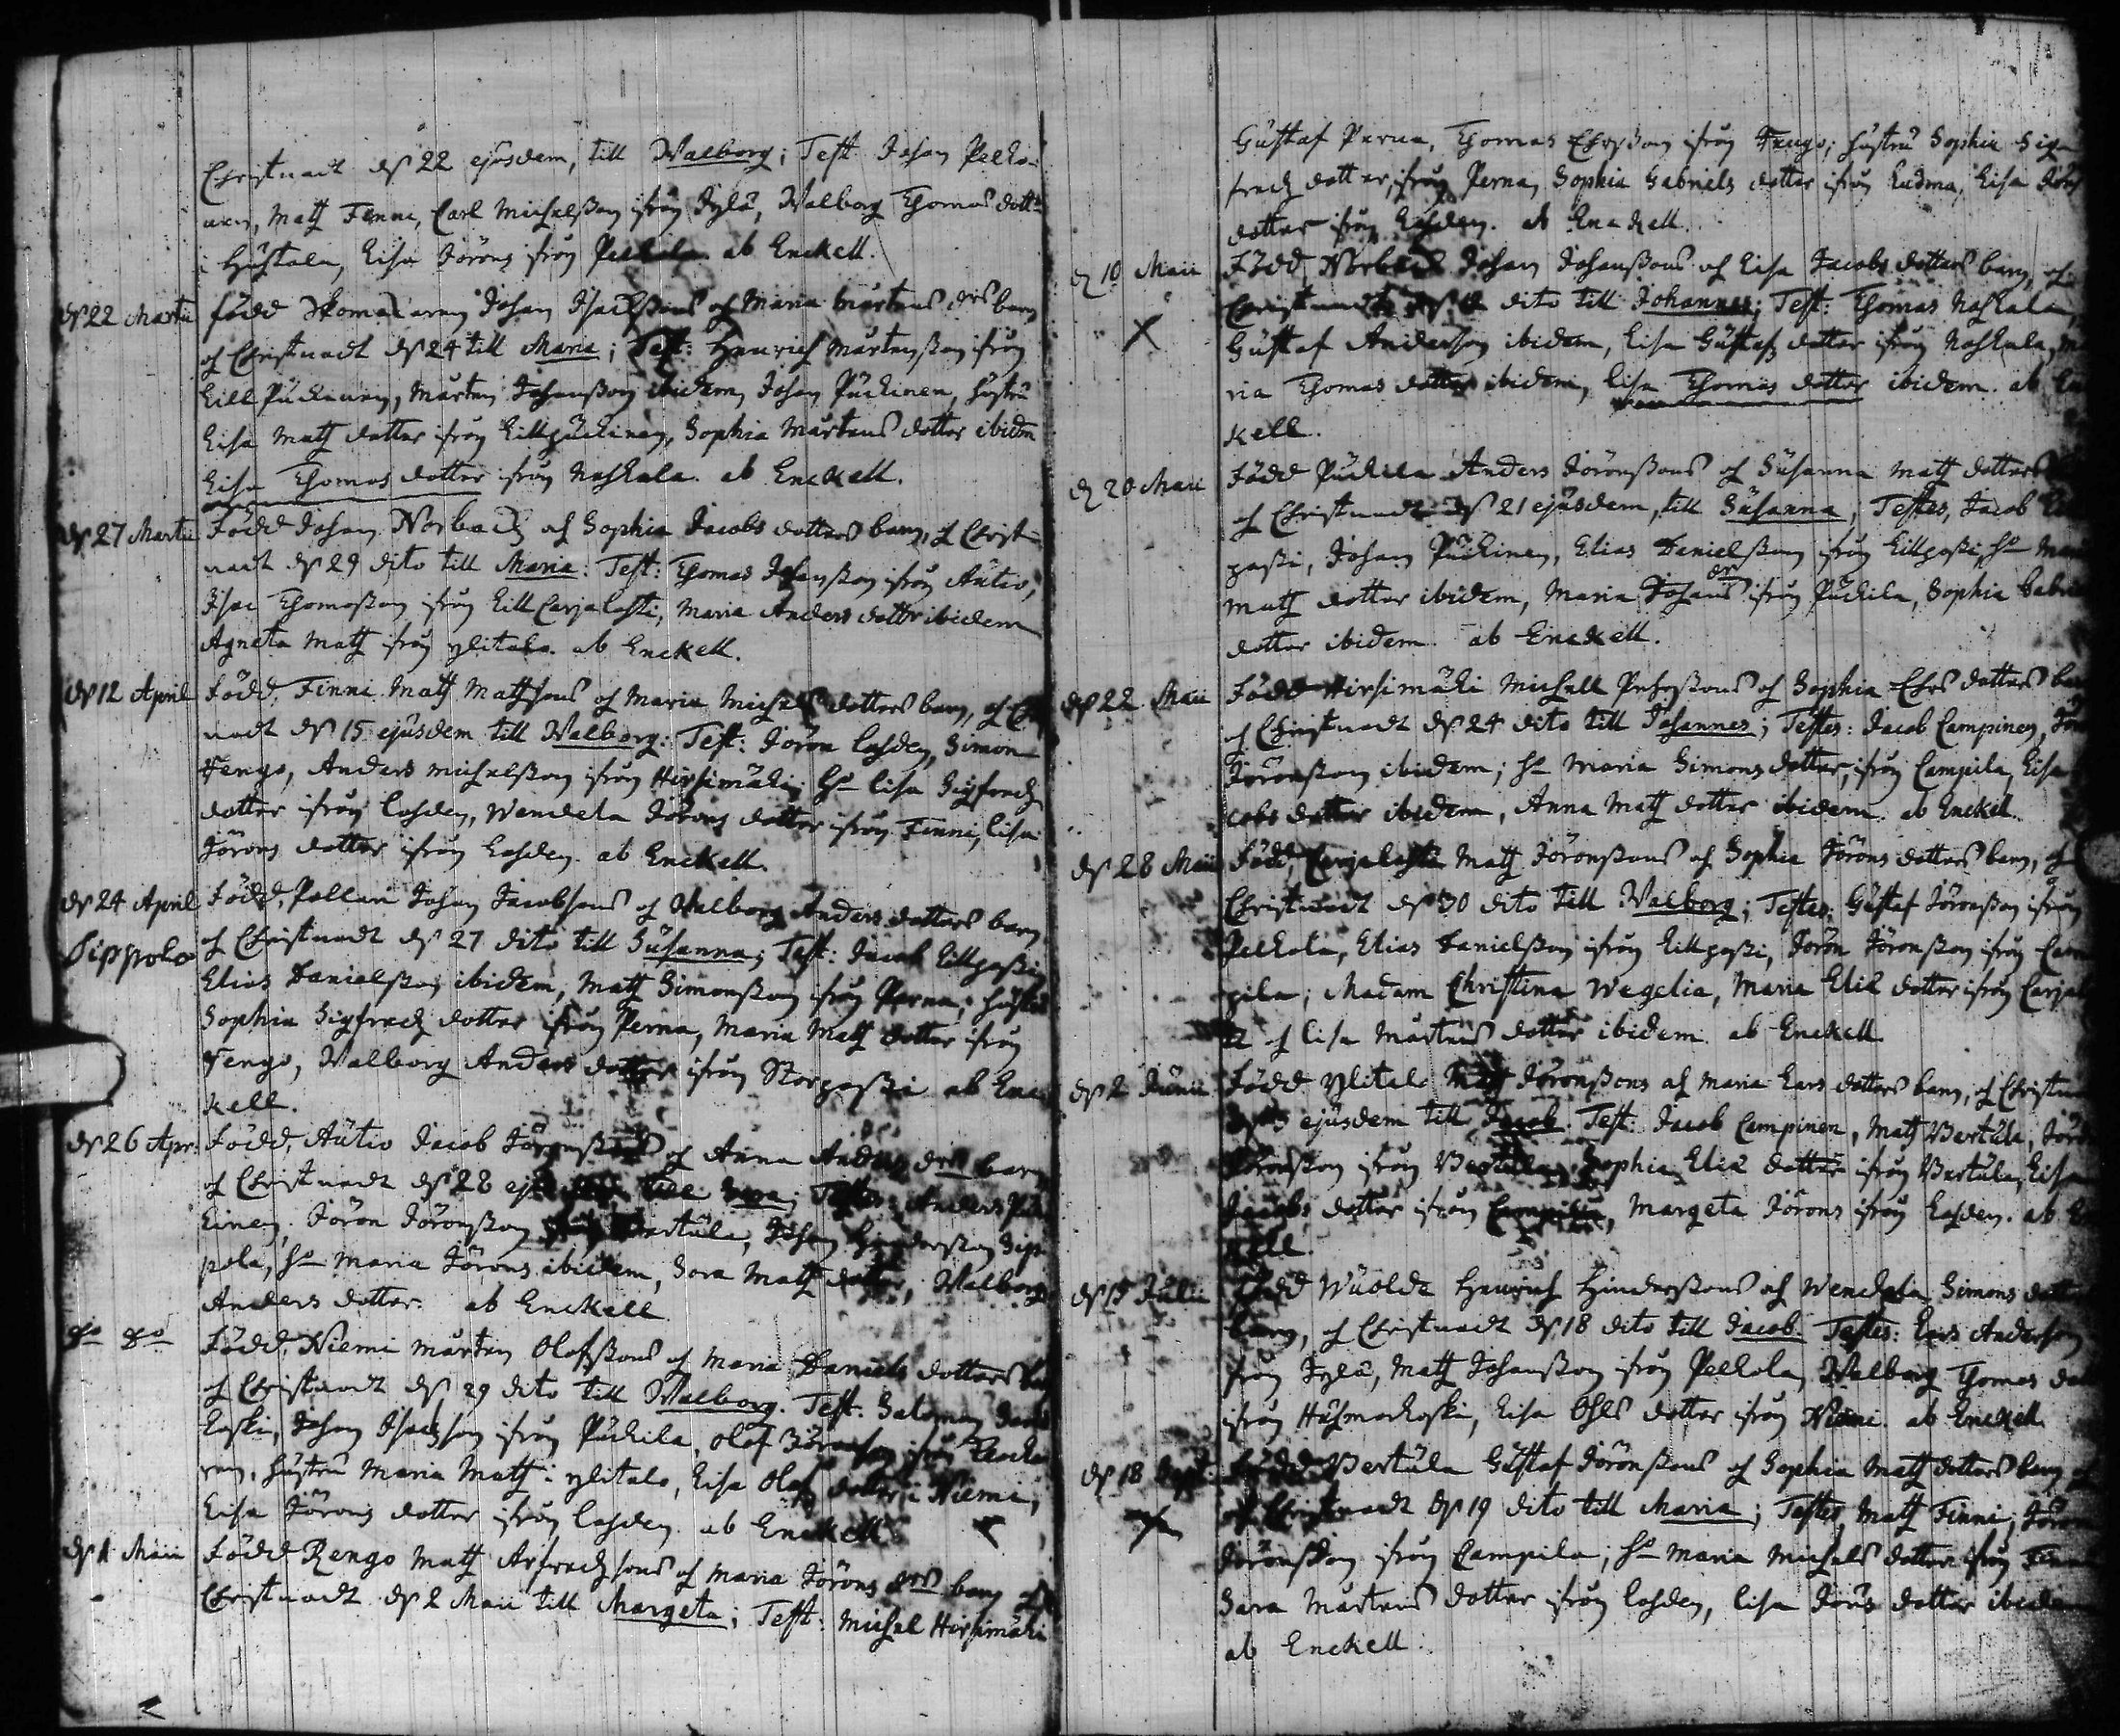 Christnadt dn 22 ejusdem, till Walborg; Test Johan Pelko-
nen, Math Finne, Carl Michelsson ifrån Jylä, Walborg Thomas dott:
i Huhtala, Lisa Jöröns ifrån Pelkola. ab Enckell.
dn 22 Martii född Skomakaren Johan Isachssons och Maria Mårtens drs barn
och Christnadt dn 24 till Maria; Test: Henrich Mårtensson ifrån
Lill Puckenen, Mårten Johansson ibidem, Johan Puckinen, hustru
Lisa Math dotter ifrån Lillpuckinen, Sophia Mårtens dotter ibidem
Lisa Thomas dotter ifrån Noskala. ab Enckell.
dn 27 Martii Född Johan Norback och Sophia Jacobs dotters barn, och Christ-
nadt dn 29 dito till Maria: Test: Thomas Johansson ifrån Autio,
Isac Thomasson ifrån Lill Carjalahti, Maria Anders dotter ibidem
Agneta Math ifrån ylitalo. ab Enckell.
dn 12 April Född, Finni Math Mathsons och Maria Michels dotters barn, och Christ
nadt dn 15 ejusdem till Walborg: Test: Jörön Lahden, Simon
Tengo, Anders Michelsson ifrån Hirsimäki; Ho Lisa Sigfredz
dotter ifrån Lahden, Wendela Jöröns dotter ifrån Finni, Lisa
Jöröns dotter ifrån Lahden. ab Enckell.
dn 24 April Född, Pollari Johan Jacobsons och Walborg Anders dotters barn
Sippola och Christnadt dn 27 dito till Susanna; Test: Jacob Lillpassi
Elias Danielsson ibidem, Math Simonsson ifrån Perna; hustru
Sophia Sigfredz dotter ifrån Perna, Maria Math dotter ifrån
Tengo, Walborg Anders dotter ifrån Storpassi ab Enc
kell.
dn 26 Apr. Född, Autio Jacob Jörönssons och Anna Anders drs barn
och Christnadt dn 28 ejusdem till; Testes: Anders Puc
kinen, Jörön Jörönsson ifrån Bertula, Johan Hindersson Sip-
pola, Ho Maria Jöröns ibidem, Sara Math dotter, Walborg
Anders dotter. ab Enckell
Do Do Född, Niemi Mårten Olofssons och Maria Daniels dotters barn
och Christnadt dn 29 dito till Walborg. Test: Salomon
koski, Johan Isachson ifrån Puckila, Olof Jöronson ifrån
ren, hustru Maria Math i ylitalo, Lisa Olofs dotter i Niemi,
Lisa Jöröns dotter ifrån Lahden. ab Enckell
dn 1 Maii Född Rengo Math Arfredzsons och Maria Jöröns drs barn och
Christnadt dn 2 Maii till Margeta; Test: Michel Hirsimäki
Gustaf Perna, Thomas Ehrsson ifrån Tengo; hustru Sophia Sig-
fredz dotter, ifrån Perna, Sophia Gabriels dotter ifrån Ludma, Lisa Jörs
dotter ifrån Lahden. ab Enckell.
d 10 Maii Född Norback Johan Johanssons och Lisa Jacobs dotters barn, och
Christnadt dn dito till Johannes; Test: Thomas Noskala,
Gustaf Anderson ibidem, Lisa Gustafs dotter ifrån Noskala, Ma
ria Thomas dotter ibidem, Lisa Thomas dotter ibidem. ab En
kell.
d 20 Maii Född Puckila Anders Jörönssons och Susanna Math dotters
och Christnadt dn 21 ejusdem, till Susanna, Testes, Jacob Lill
passi, Johan Puckinen, Elias Danielsson ifrån Lillpassi, Ho Maria
Math dotter ibidem, Maria Johans dr ifrån Puckila, Sophia Gabriels
dotter ibidem. ab Enckell.
dn 22 Maii Född Hirsimäki Michell Pehrssons och Sophia Ehrs dotters barn
och Christnadt dn 24 dito till Johannes; Testes: Jacob Campinen, Jörön
Jörönsson ibidem; Ho Maria Simons dotter, ifrån Campila, Lisa
cobs dotter ibidem, Anna Math dotter ibidem. ab Enckell.
dn 28 Maii Född, Carjalahti Math Jörönssons och Sophia Jöröns dotters barn, och
Christnadt dn 30 dito till Walborg; Testes: Gustaf Jörönsson ifrån
Pelkola, Elias Danielsson ifrån Lillpassi, Jörön Jörönsson ifrån Cam
pila; Madam Christina Wegelia, Maria Eliæ dotter ifrån Carjala
ti och Lisa Mårtens dotter ibidem. ab Enckell
dn 2 Junii Född ylitalo Math Jörönssons och Maria Lars dotters barn, och Christna
dn 3 ejusdem till Jacob. Test: Jacob Campinen, Math Bertula, Jörön
Jörönsson ifrån Bertula, Sophia Eliæ dotter ifrån Bertula, Lisa
Jacobs dotter ifrån Campila, Margeta Jöröns ifrån Lahden. ab En
kell.
dn 15 Julii Född Wuolda Henrich Hinderssons och Wendela Simons dotters
barn, och Christnadt dn 18 dito till Jacob. Testes: Lars Anderson
ifrån Jylä, Math Johansson ifrån Pelkola, Walborg Thomas dotter
ifrån Huhmarkoski, Lisa Ohls dotter ifrån Niemi. ab Enckell
dn 18 Sept: Född Bertula Gustaf Jörönssons och Sophia Math dotters barn
och Christnadt dn 19 dito till Maria; Testes, Math Finni, Jörön
Jörönsson ifrån Campila; Ho Maria Michels dotter ifrån Finni
Sara Mårtens dotter ifrån Lahden, Lisa Jörns dotter ibidem
ab Enckell.